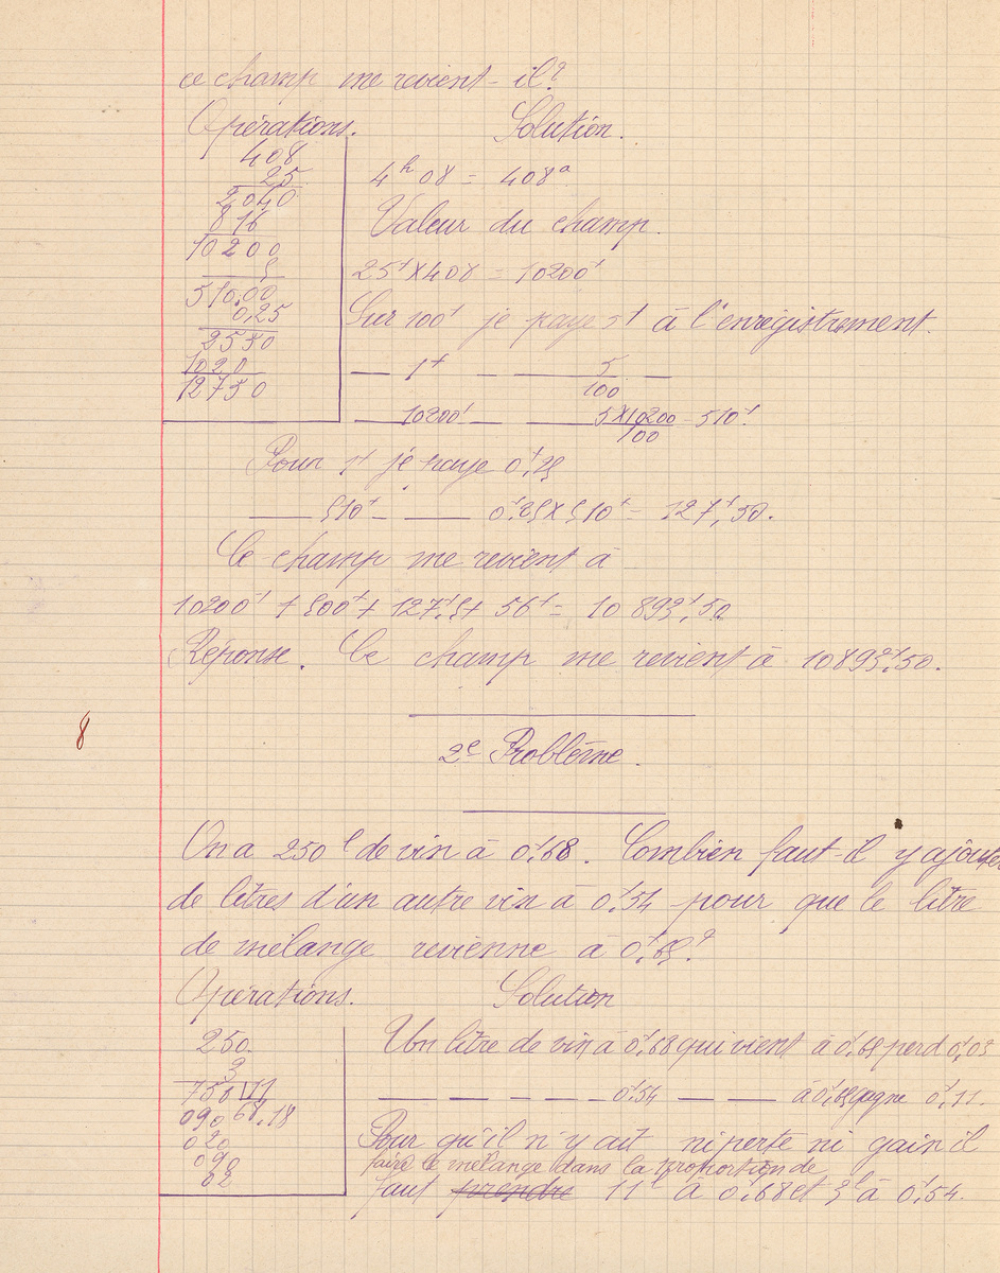 ce champ me revient-il?
Opérations. Solution.
408
25
2040
816
10200
5
510,00
0,25
2550
1020
12750
4h 08 = 408a
Valeur du champ.
25f X 408 = 10200f
Sur 100f je paye 5f à l'enregistrement.
— 1f — — 5/100 —
— 10200f — — 5X10200/100 = 510f
Pour 1f je paye 0f,25
— 510f — — 0f,25 X 510f = 127f,50.
Ce champ me revient à
10200f + 500f + 127f,5 + 56f = 10 893f,50
Réponse. Ce champ me revient à 10893f,50.
8
2e Problème.
On a 250 l de vin à 0f,68. Combien faut-il y ajouter
de litres d'un autre vin à 0f,54 pour que le litre
de mélange revienne à 0f,65?
Opérations. Solution
250.
3
750 11
090 68,18
020
090
02
Un litre de vin à 0f,68 qui vient à 0f,65 perd 0f,03
— — — — — 0f,54 — — à 0f,65 gagne 0f,11.
Pour qu'il n'y ait ni perte ni gain il
faire le mélange dans la proportion de
faut prendre 11l à 0f,68 et 3l à 0f,54.